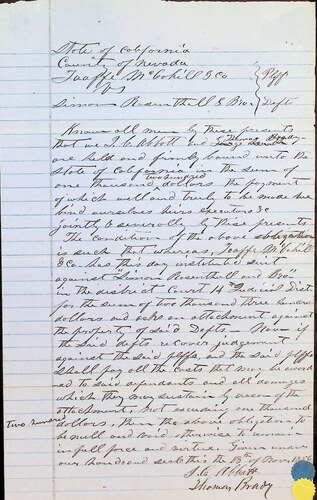 State of California
County of Nevada
Taaffe McCahill & Co } Plff
vs
Simon Rosenthall & Bro. } Defts
Know all men by these presents
that we J. C. Abbott and Thomas Brady
are held and firmly bound unto the
State of California in the sum of
two hundred
one thousand dollars the payment
of which well and truly to be made we
bind ourselves heirs executors &c
jointly & severally by these presents
The condition of the above obligation
is such that whereas, Taaffe McCahill
& Co. has this day instituted suit
against "Simon Rosenthall and Bro"
in the district Court 14th Judicial Dist
for the sum of two thousand three hundred
dollars and take an attachment against
the property of said Defts - Now if
the said defts recover judgement
against the said plffs, and the said plffs
shall pay all the costs that may be award
ed to said defendants and all damages
which they may sustain by reason of the
attachment, not exceeding one thousand
two hundred
dollars, then the above obligation to
be null and void otherwise to remain
in full force and virtue. Given under
our hands and seals this the 13th of Nov 1856
J. C. Abbott
Thomas Brady